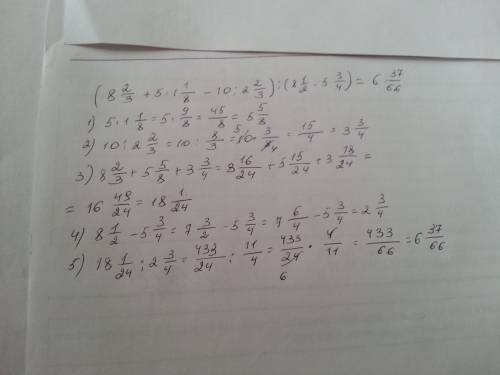 (8 2/3 + 5 · 1 1/8 - 10 : 2 2/3) : (8 1/2 - 5 3/4) = 6 37/66
1) 5 · 1 1/8 = 5 · 9/8 = 45/8 = 5 5/8
2) 10 : 2 2/3 = 10 : 8/3 = 10 · 3/8 = 15/4 = 3 3/4
3) 8 2/3 + 5 5/8 + 3 3/4 = 8 16/24 + 5 15/24 + 3 18/24 =
= 16 49/24 = 18 1/24
4) 8 1/2 - 5 3/4 = 7 3/2 - 5 3/4 = 7 6/4 - 5 3/4 = 2 3/4
5) 18 1/24 : 2 3/4 = 433/24 : 11/4 = 433/24 · 4/11 = 433/66 = 6 37/66
6